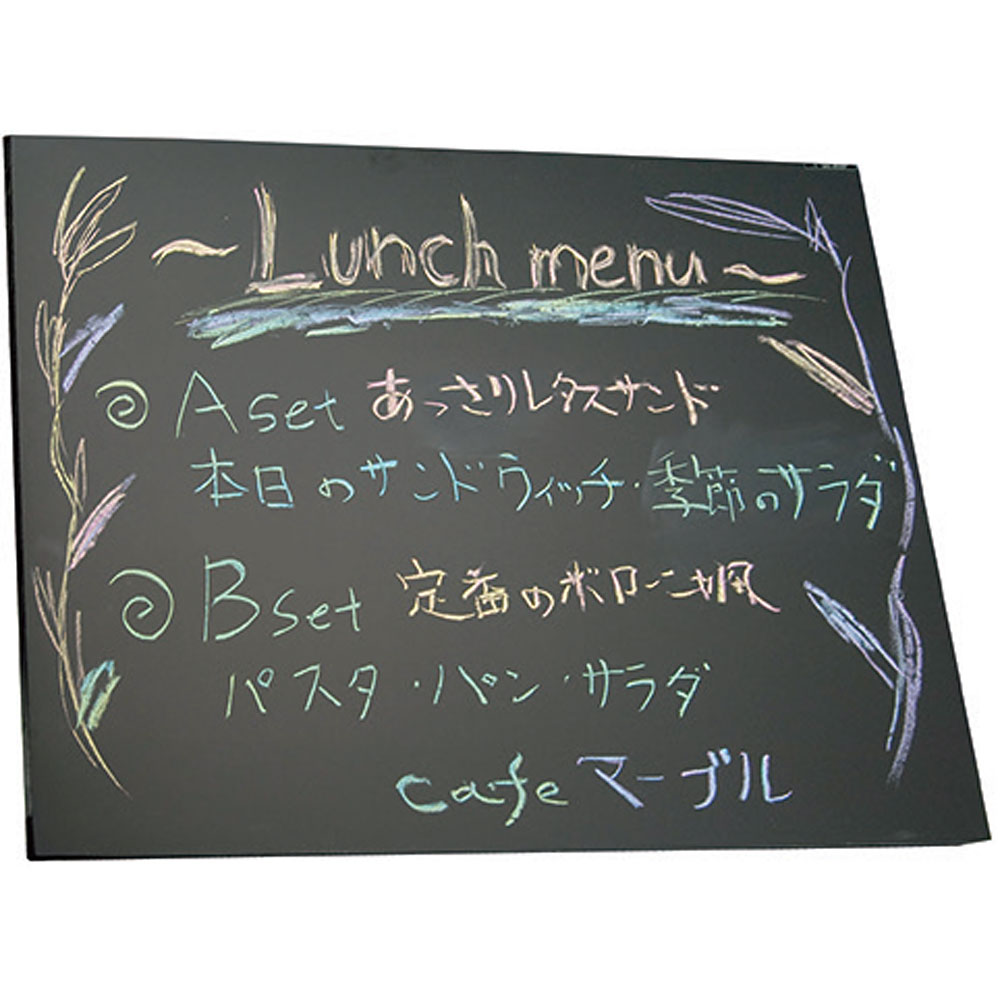 ~Lunch menu~
A set あっさりレタスサンド
本日のサンドウィッチ・季節のサラダ
B set 定番のボローニャ風
パスタ・パン・サラダ
cafe マーブル